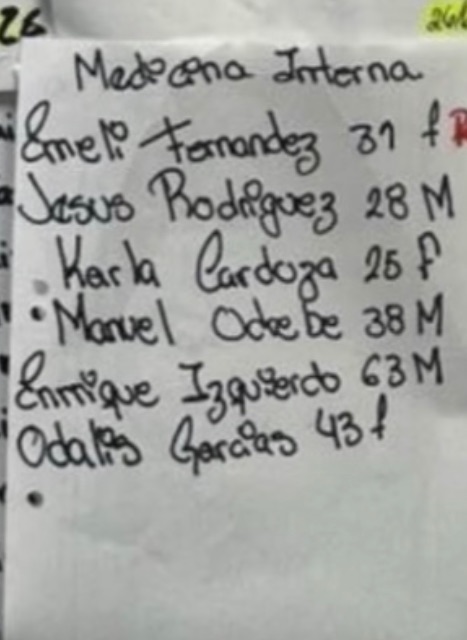 26
Medicina Interna
Emeli Fernandez 31 f R
Jasus Rodriguez 28 M
• Karla Cardoza 25 f
• Manuel Ockebe 38 M
Enrrique Izquierdo 63 M
Odalis Garcias 43 f
•